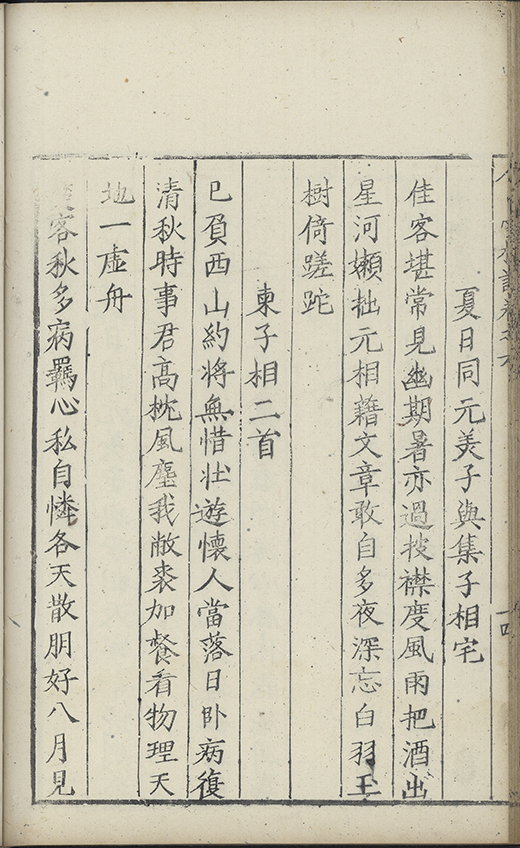 夏日同元美子與集子相宅
佳客堪常見幽期暑亦過披襟度風雨把酒出
星河嬾拙元相藉文章敢自多夜深忘白羽玉
樹倚蹉跎
柬子相二首
已負西山約將無惜壯遊懷人當落日卧病復
清秋時事君高枕風塵我敝裘加餐看物理天
地一虛舟
客秋多病羈心私自憐各天散朋好八月見